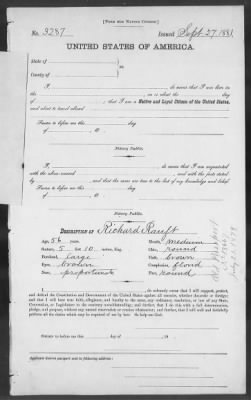 [FORM FOR NATIVE CITIZEN.]
No. 3287 Issued Sept. 27, 1881
UNITED STATES OF AMERICA.
State of
County of
I, do swear that I was born in
in on or about the day
of , that I am a Native and Loyal Citizen of the United States,
and about to travel abroad
Sworn to before me this day
of , 18
Notary Public.
I, do swear that I am acquainted
with the above-named and with the facts stated
by and that the same are true to the best of my knowledge and belief.
Sworn to before me this day
of 18
Notary Public.
DESCRIPTION OF Richard Rauft
Age, 56 years. Mouth, medium
Stature, 5 feet 10 inches, Eng. Chin, round
Forehead, large Hair, brown
Eyes, brown Complexion, florid
Nose, proportionate Face, round
I, , do solemnly swear that I will support, protect,
and defend the Constitution and Government of the United States against all enemies, whether domestic or foreign; and
that I will bear true faith, allegiance, and loyalty to the same, any ordinance, resolution, or law of any State,
Convention, or Legislature to the contrary notwithstanding; and further, that I do this with a full determination,
pledge, and purpose, without any mental reservation or evasion whatsoever; and further, that I will well and faithfully
perform all the duties which may be required of me by law: So help me God.
Sworn to before me, this day of , 18
Notary Public.
Applicant desires passport sent to following address: